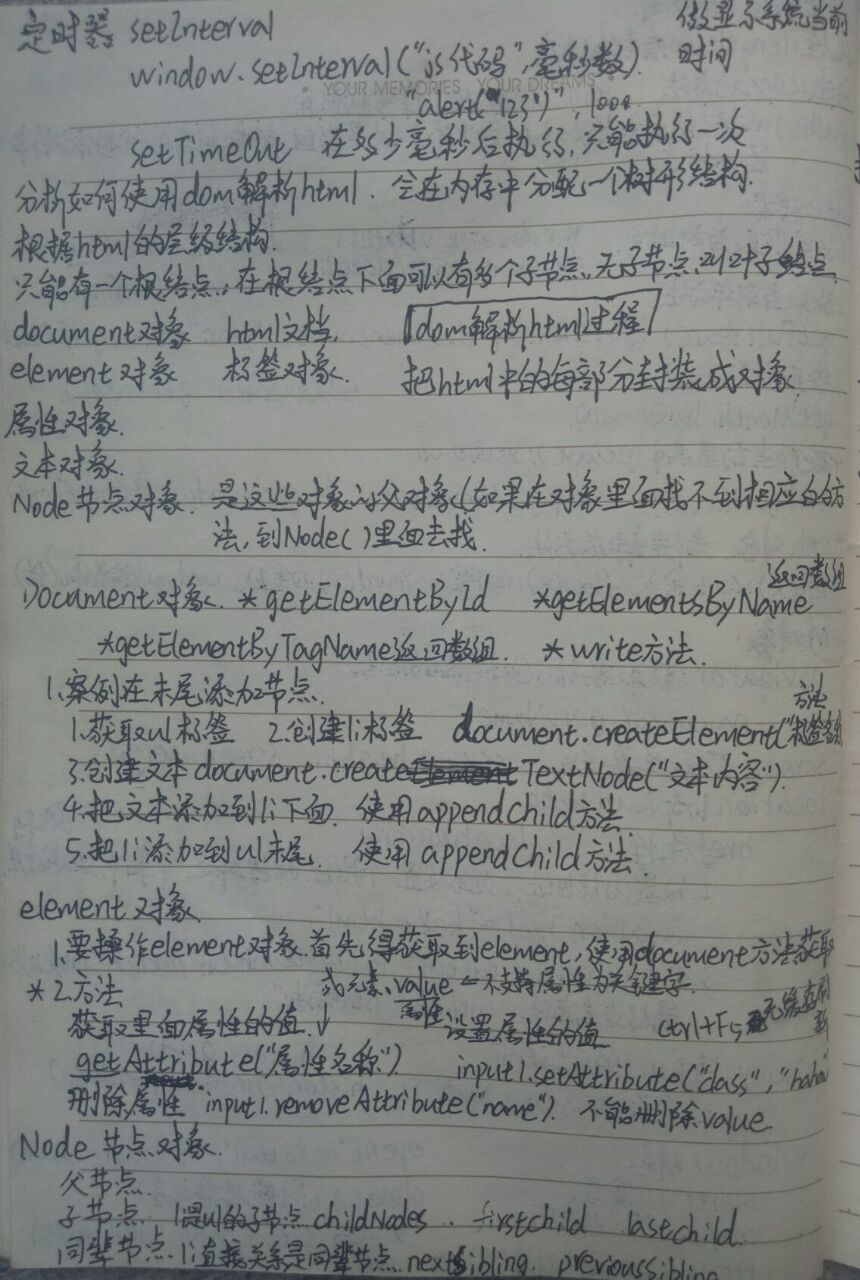 定时器 setInterval 做显示系统当前时间
window.setInterval("js代码",毫秒数).
YOUR MEMORIES YOUR DREAMS
"alert('123')", 1000
setTimeOut 在多少毫秒后执行,只能执行一次
分析如何使用dom解析html. 会在内存中分配一个树形结构.
根据html的层级结构.
只能有一个根结点,在根结点下面可以有多个子节点,无子节点、叫叶子结点
document对象 html文档. dom解析html过程
element对象 标签对象. 把html中的每部分封装成对象.
属性对象.
文本对象.
Node节点对象. 是这些对象的父对象(如果在对象里面找不到相应的方
法,到Node()里面去找.
返回数组
Document对象. *getElementById *getElementsByName
*getElementByTagName返回数组. *write方法.
1.案例在末尾添加节点.
方法
1.获取ul标签 2.创建li标签 document.createElement("标签名称
3.创建文本 document.createTextNode("文本内容").
4.把文本添加到li下面. 使用appendChild方法.
5.把li添加到ul末尾. 使用appendChild方法.
element对象.
1.要操作element对象.首先得获取到element,使用document方法获取
*2.方法 或元素.value ←不支持属性为关键字.
属性
获取里面属性的值↓ 设置属性的值 ctrl+F5 无缓存刷新
getAttribute("属性名称") input1.setAttribute("class","haha"
删除属性 input1.removeAttribute("name"). 不能删除value.
Node节点对象.
父节点.
子节点. li是ul的子节点 childNodes. firstchild lastchild.
同辈节点. li直接关系是同辈节点. nextsibling. previoussibling